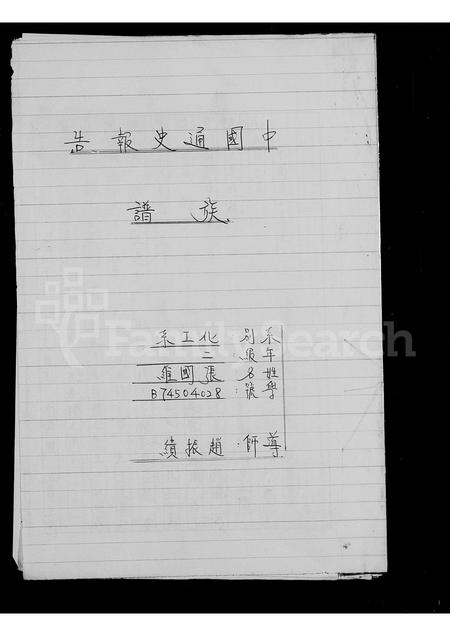 中國通史報告
族譜
系別 化工系
年級：二
姓名 張國維
學號：B74504028
導師：趙振績
FamilySearch